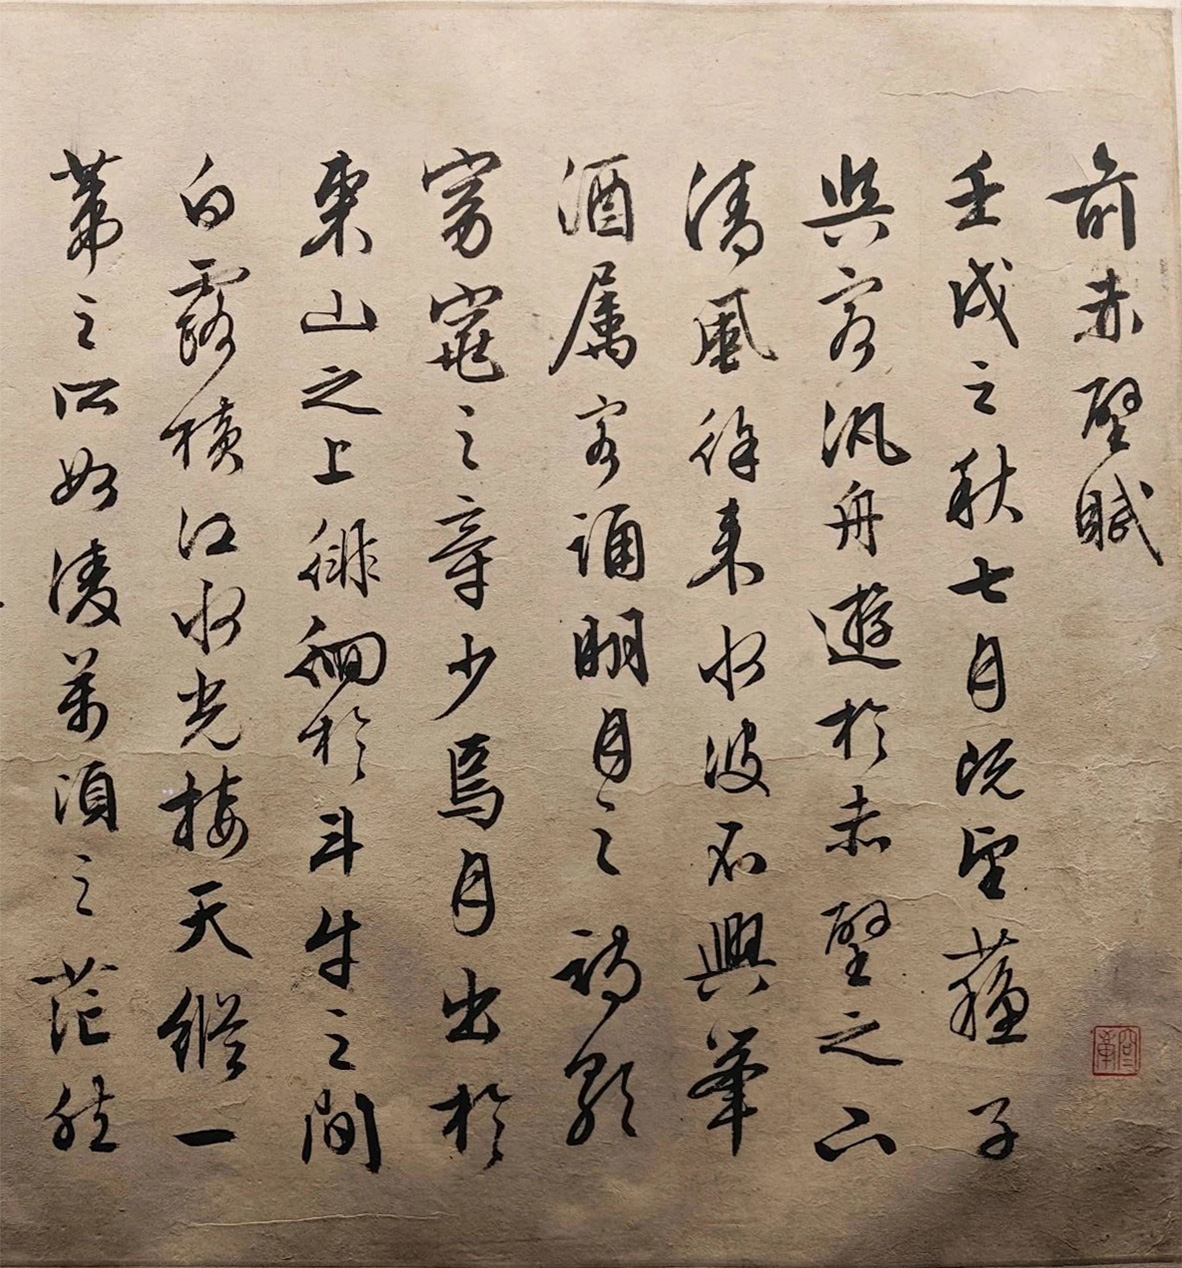 前赤壁賦
壬戌之秋七月既望蘇子
與客汎舟遊於赤壁之下
清風徐來水波不興舉
酒属客誦明月之詩歌
窈窕之章少焉月出於
東山之上徘徊於斗牛之間
白露橫江水光接天縱一
葦之所如淩萬頃之茫然